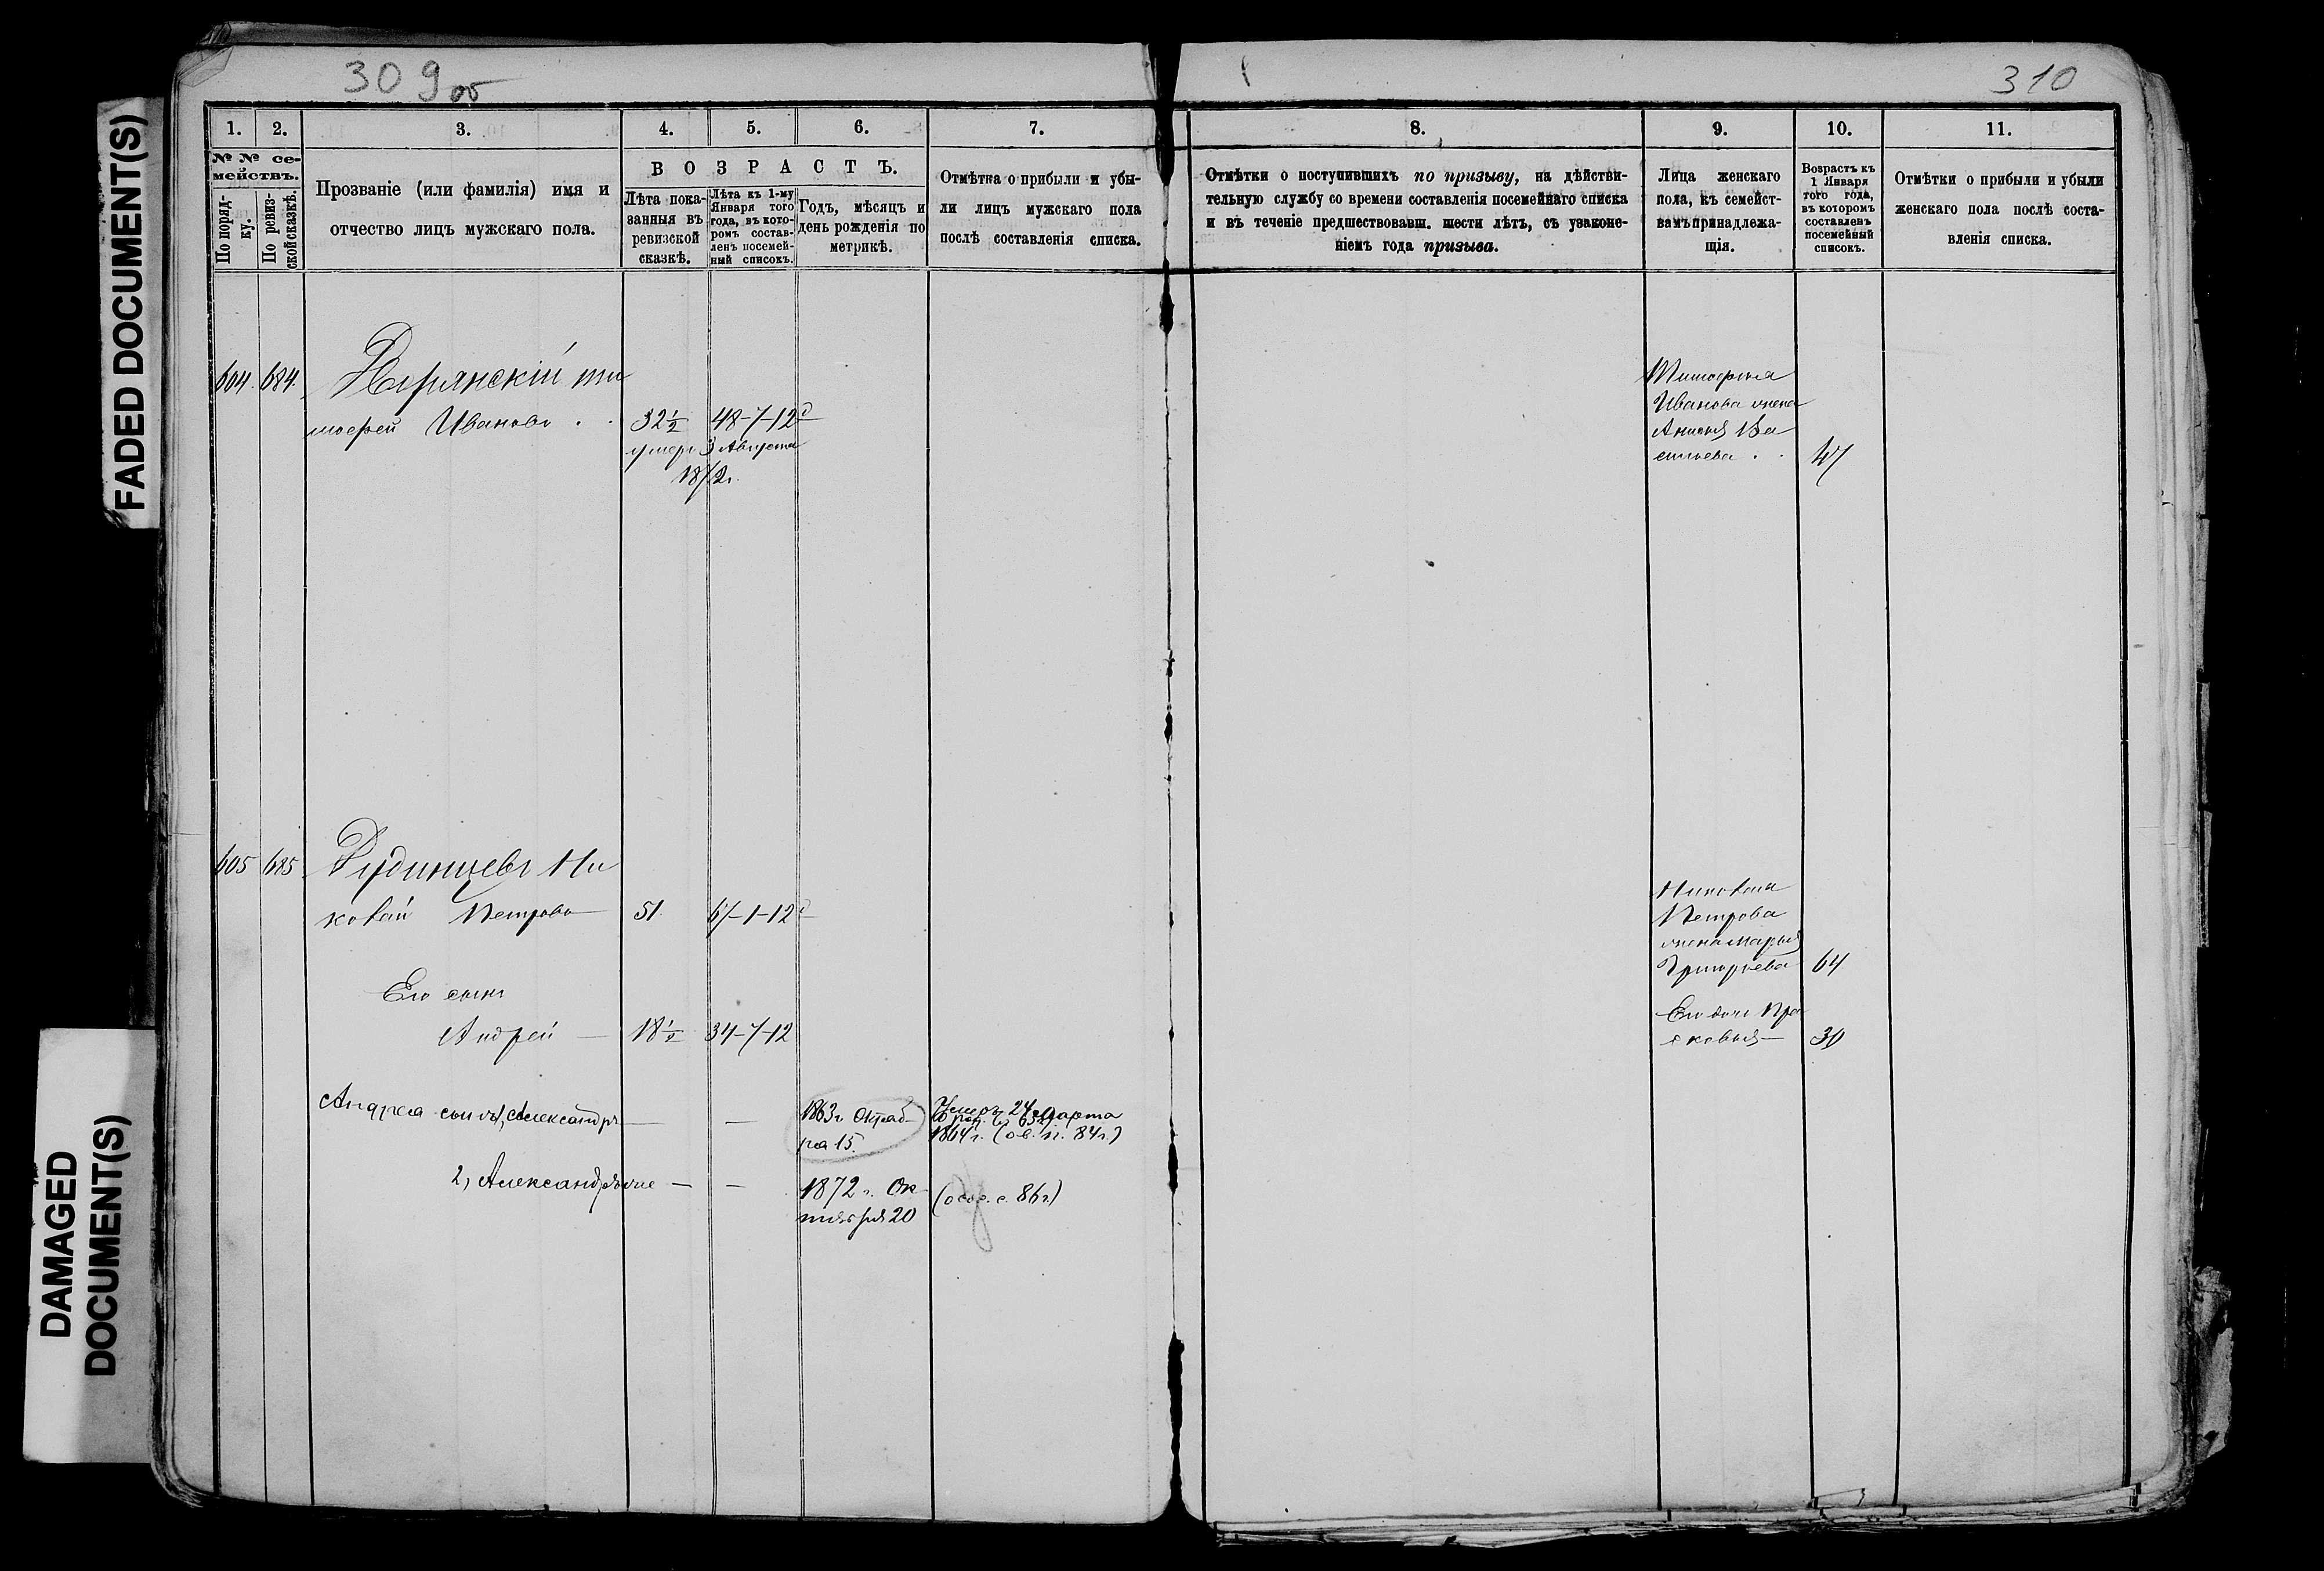 309 об
310
FADED DOCUMENT(S)
DAMAGED
DOCUMENT(S)
1. 2. 3. 4. 5. 6. 7. 8. 9. 10. 11.
№ № се-
мействъ.
По поряд-
ку.
По ревиз-
ской сказкѣ.
Прозваніе (или фамилія) имя и
отчество лицъ мужскаго пола.
ВОЗРАСТЪ.
Лѣта пока-
занныя въ
ревизской
сказкѣ.
Лѣта къ 1-му
Января того
года, въ кото-
ромъ состав-
ленъ посемей-
ный списокъ.
Годъ, мѣсяцъ и
день рожденія по
метрикѣ.
Отмѣтка о прибыли и убы-
ли лицъ мужскаго пола
послѣ составленія списка.
Отмѣтки о поступившихъ по призыву, на дѣйстви-
тельную службу со времени составленія посемейнаго списка
и въ теченіе предшествовавш. шести лѣтъ, съ узаконе-
ніемъ года призыва.
Лица женскаго
пола, къ семейст-
вамъ принадлежа-
щія.
Возрастъ къ
1 Января
того года,
въ которомъ
составленъ
посемейный
списокъ.
Отмѣтки о прибыли и убыли
женскаго пола послѣ соста-
вленія списка.
604. 684. ти
мофей Ивановъ . . 32½ 48-7-12
умеръ 3 Августа
1872г.
Тимофея
Ивanova жена
Анисья Ва
сильева . . 47
605 685. Рудинцевъ Ни
колай Петровъ 51. 67-1-12
Николая
Петрова
жена Марья
Григорьева 64
Его сынъ
Андрей — 18½ 34-7-12
Его дочь Пра
сковья — 30
Андрея сынъ 1, Александръ — — 1863г Октяб-
ря 15.
Умеръ 24 марта
1864г. 84г.)
2, Александръ же — — 1872 г. Ок
тября 20 86г.)